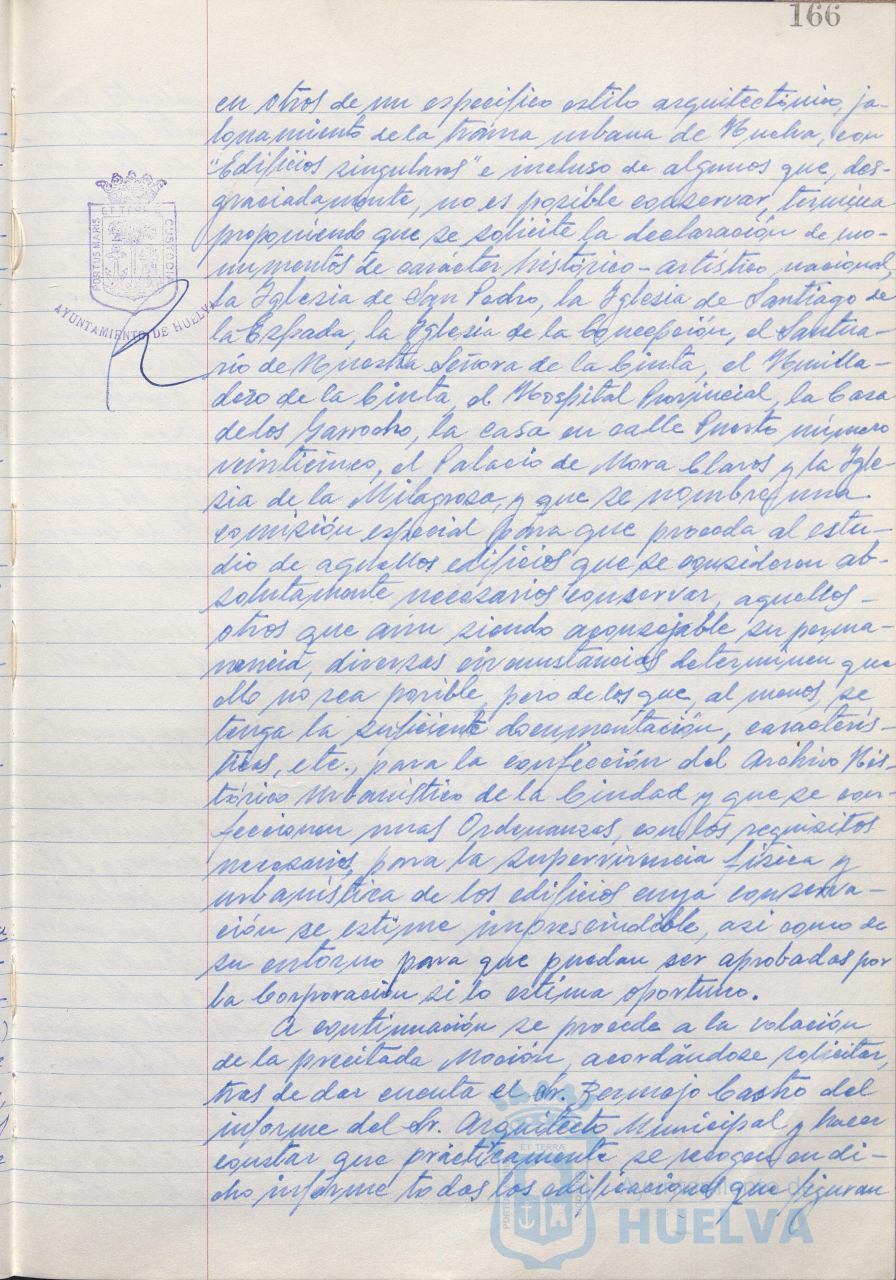 166
en otros de un especifico estilo arquitectónico, ja-
lonamiento de la trama urbana de Huelva, con
"Edificios singulares" e incluso de algunos que, des-
graciadamente, no es posible conservar, termina
proponiendo que se solicite la declaración de mo-
numentos de carácter histórico-artístico nacional,
la Iglesia de San Pedro, la Iglesia de Santiago de
la Espada, la Iglesia de la Concepción, el Santua-
rio de Nuestra Señora de la Cinta, el Humilla-
dero de la Cinta, el Hospital Provincial, la Casa
de los Garrocho, la casa en calle Puerto número
veinticinco, el Palacio de Mora Claros y la Igle-
sia de la Milagrosa, y que se nombre una
comisión especial para que proceda al estu-
dio de aquellos edificios que se consideren ab-
solutamente necesarios conservar, aquellos
otros que aún siendo aconsejable su perma-
nencia, diversas circunstancias determinen que
ello no sea posible, pero de los que, al menos, se
tenga la suficiente documentación, caracterís-
ticas, etc., para la confección del Archivo His-
tórico Urbanístico de la Ciudad y que se con-
feccionen unas Ordenanzas, con los requisitos
necesarios, para la supervivencia física y
urbanística de los edificios cuya conserva-
ción se estime imprescindible, asi como de
su entorno para que puedan ser aprobadas por
la Corporación si lo estima oportuno.
A continuación se procede a la votación
de la precitada Moción, acordándose solicitar,
tras de dar cuenta el Sr. Bermejo Castro del
informe del Sr. Arquitecto Municipal y hacer
constar que prácticamente se recogen en di-
cho informe todas las edificaciones que figuran
PORTUS MARIS
ET TERRAE
CUSTODIA
AYUNTAMIENTO DE HUELVA
PORTUS
ET TERRÆ
Ayuntamiento de
HUELVA